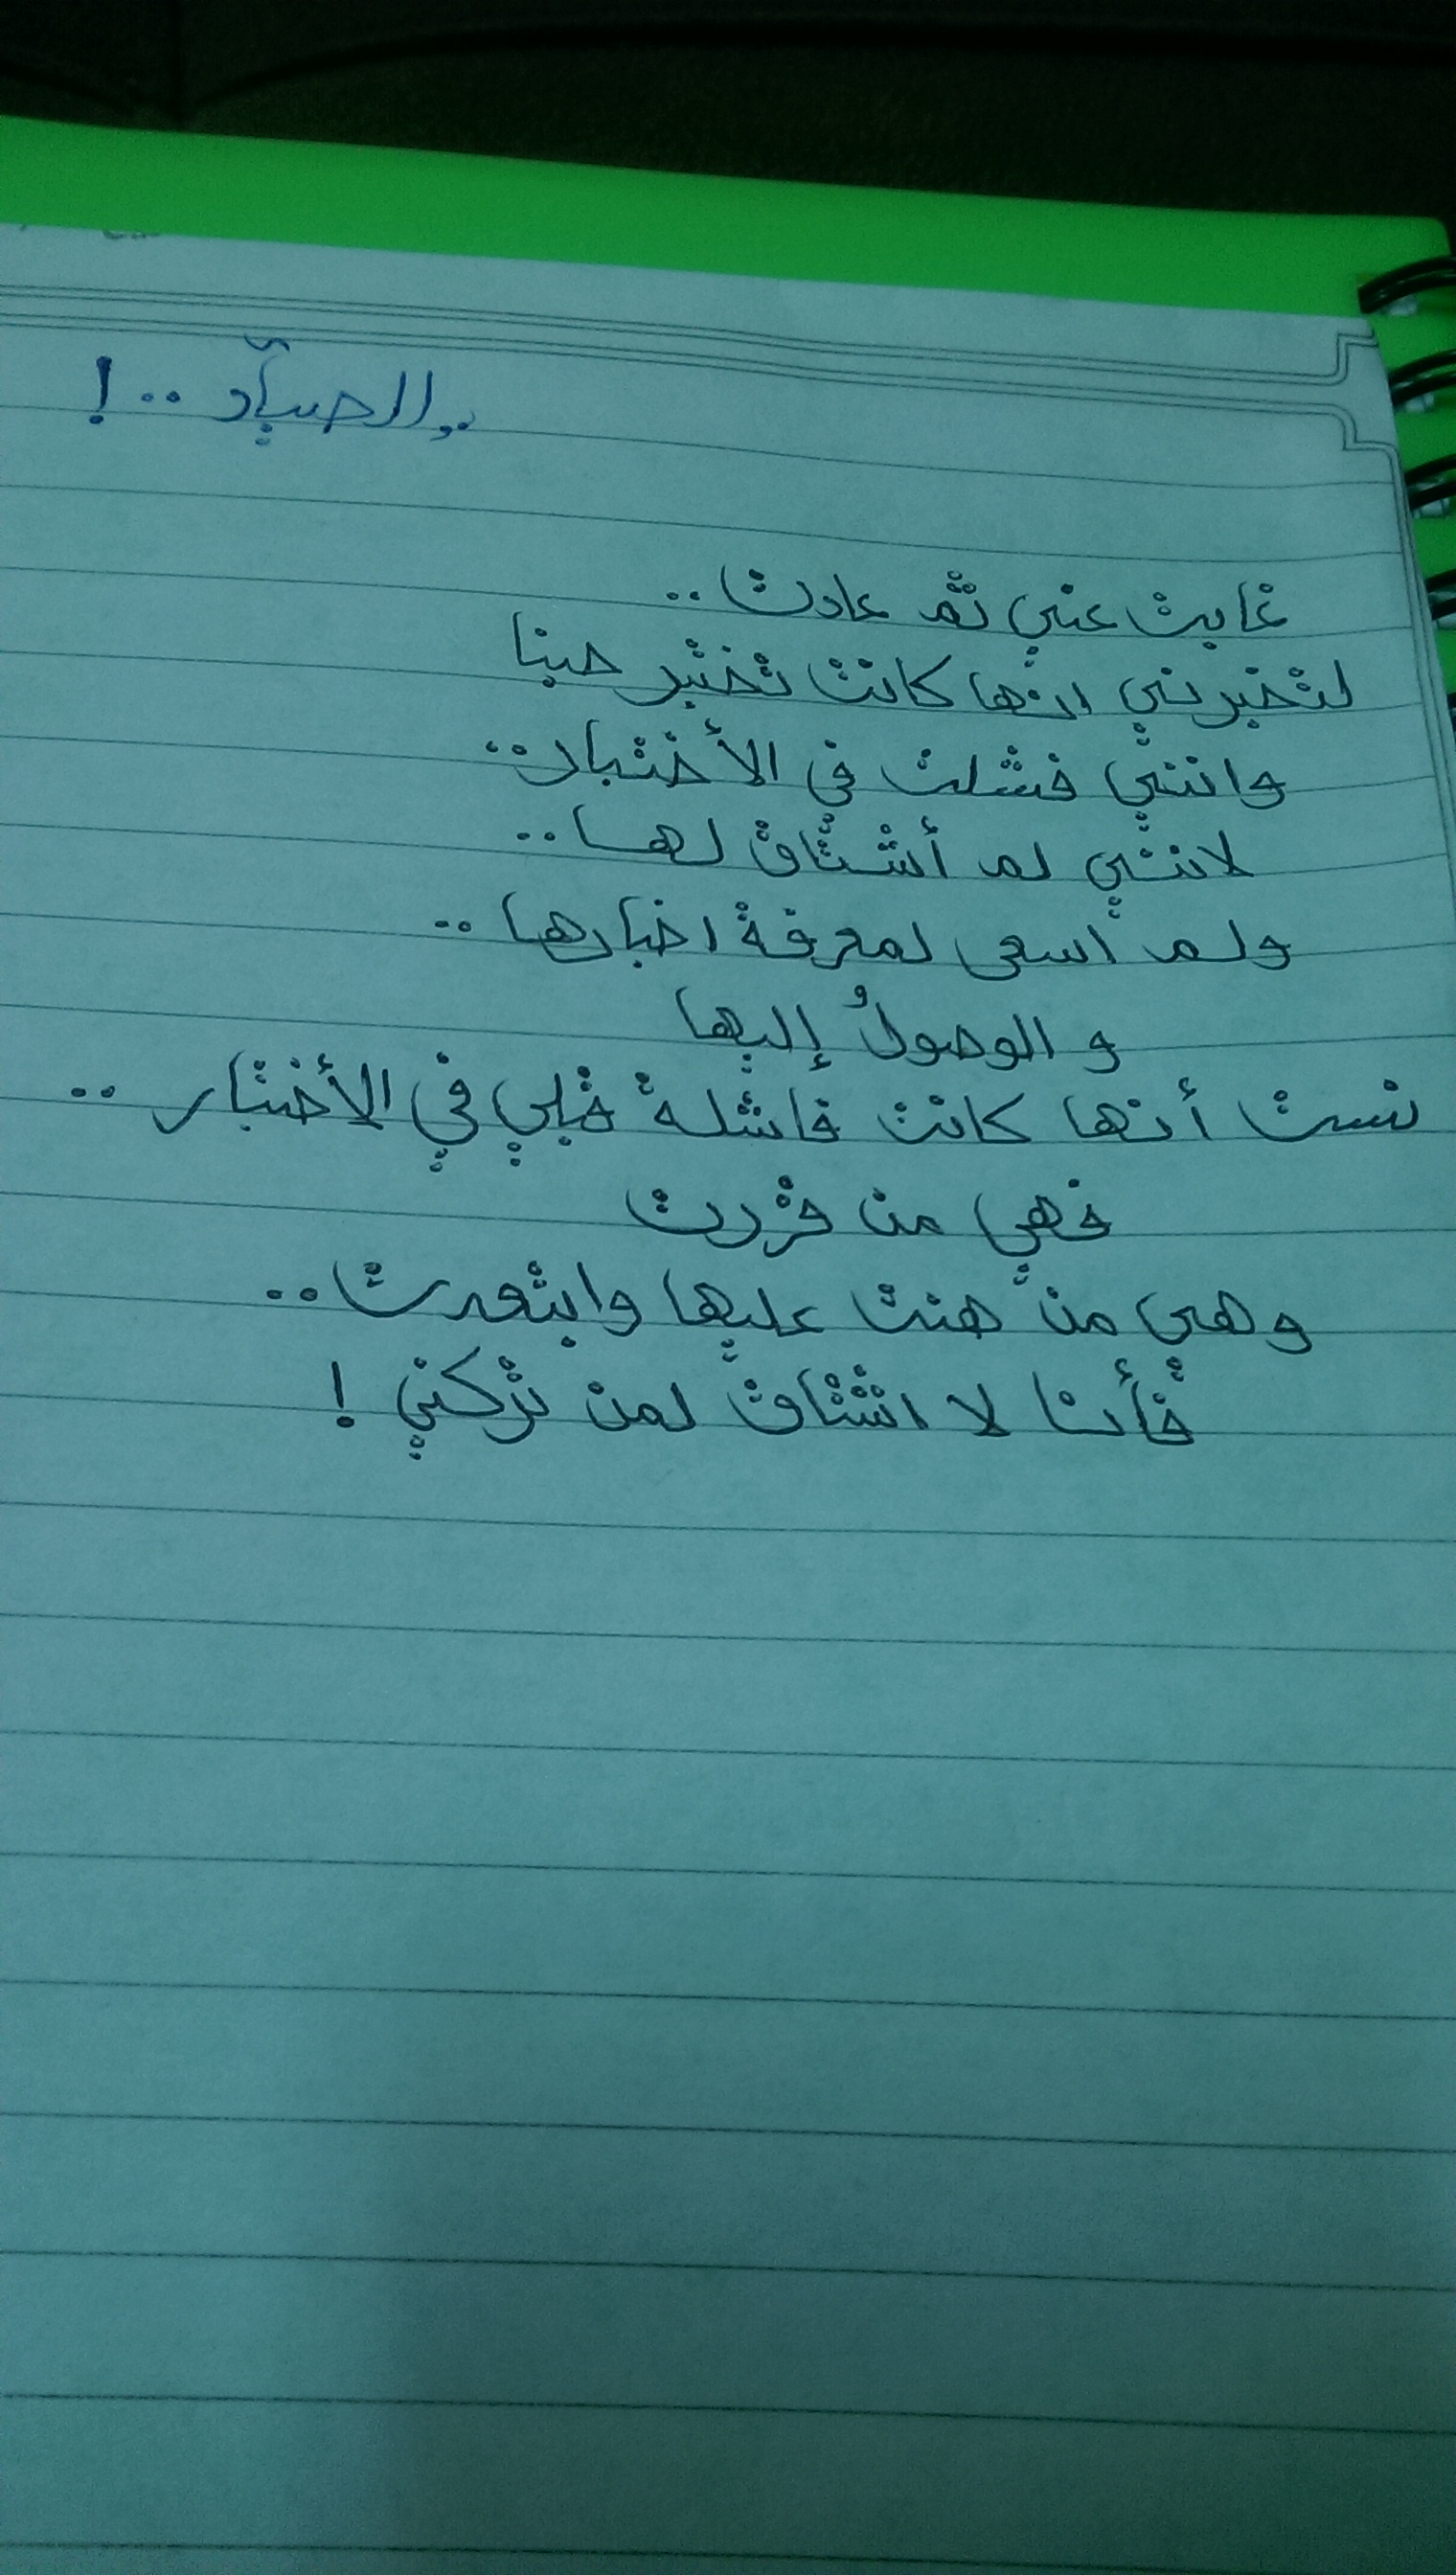 ,,الصيّاد ..!
غابت عني ثم عادت ..
لتخبرني انها كانت تختبر حبنا
وانني فشلت في الأختبار ..
لانني لم أشتاق لها ..
ولم اسعى لمعرفة اخبارها ..
و الوصولُ إليها
نست أنها كانت فاشلة قبلي في الأختبار ..
فهي من قررت
وهي من هنت عليها وابتعدت ..
فأنا لا اشتاق لمن تركني !